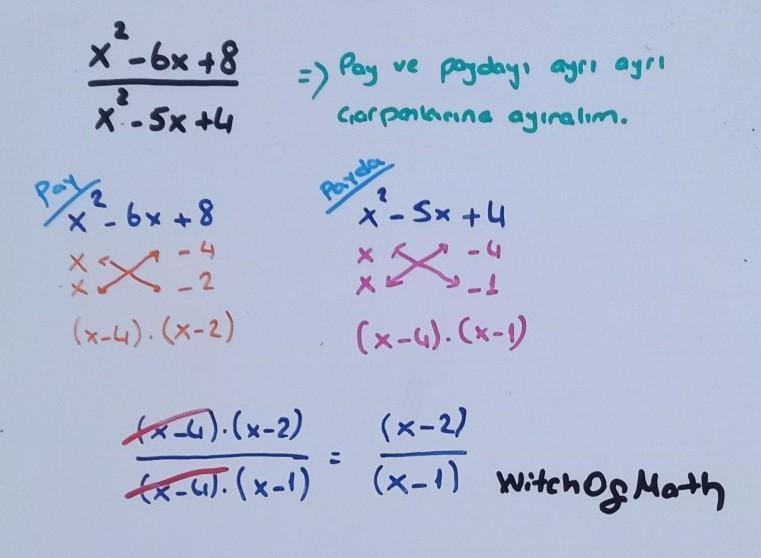 x² - 6x + 8
x² - 5x + 4
=> Pay ve paydayı ayrı ayrı
çarpanlarına ayıralım.
Pay
x² - 6x + 8
x - 4
x - 2
(x-4).(x-2)
Payda
x² - 5x + 4
x - 4
x - 1
(x-4).(x-1)
(x-4).(x-2) = (x-2)
(x-4).(x-1) (x-1)
WitchOfMath